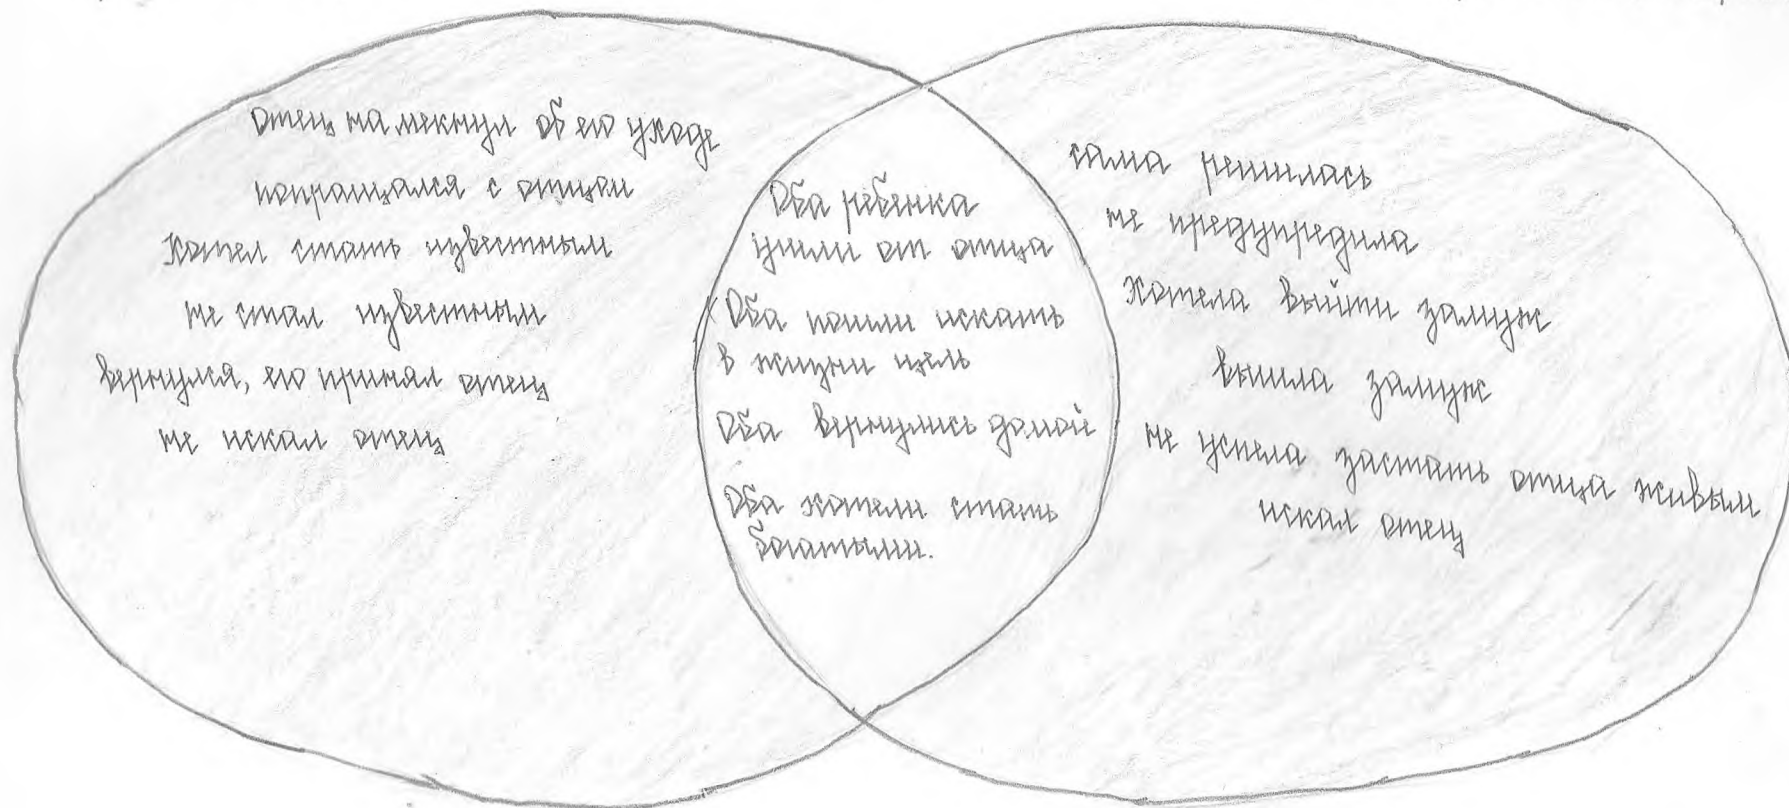 отец намекнул об его уходе
попращался с отцом
Хотел стать известным
не стал известным
вернулся, его принял отец
не искал отец
Оба ребенка
ушли от отца
Оба пошли искать
в жизни цель
Оба вернулись домой
Оба хотели стать
богатыми.
сама решилась
не предупредила
Хотела выйти замуж
вышла замуж
не успела застать отца живым
искал отец